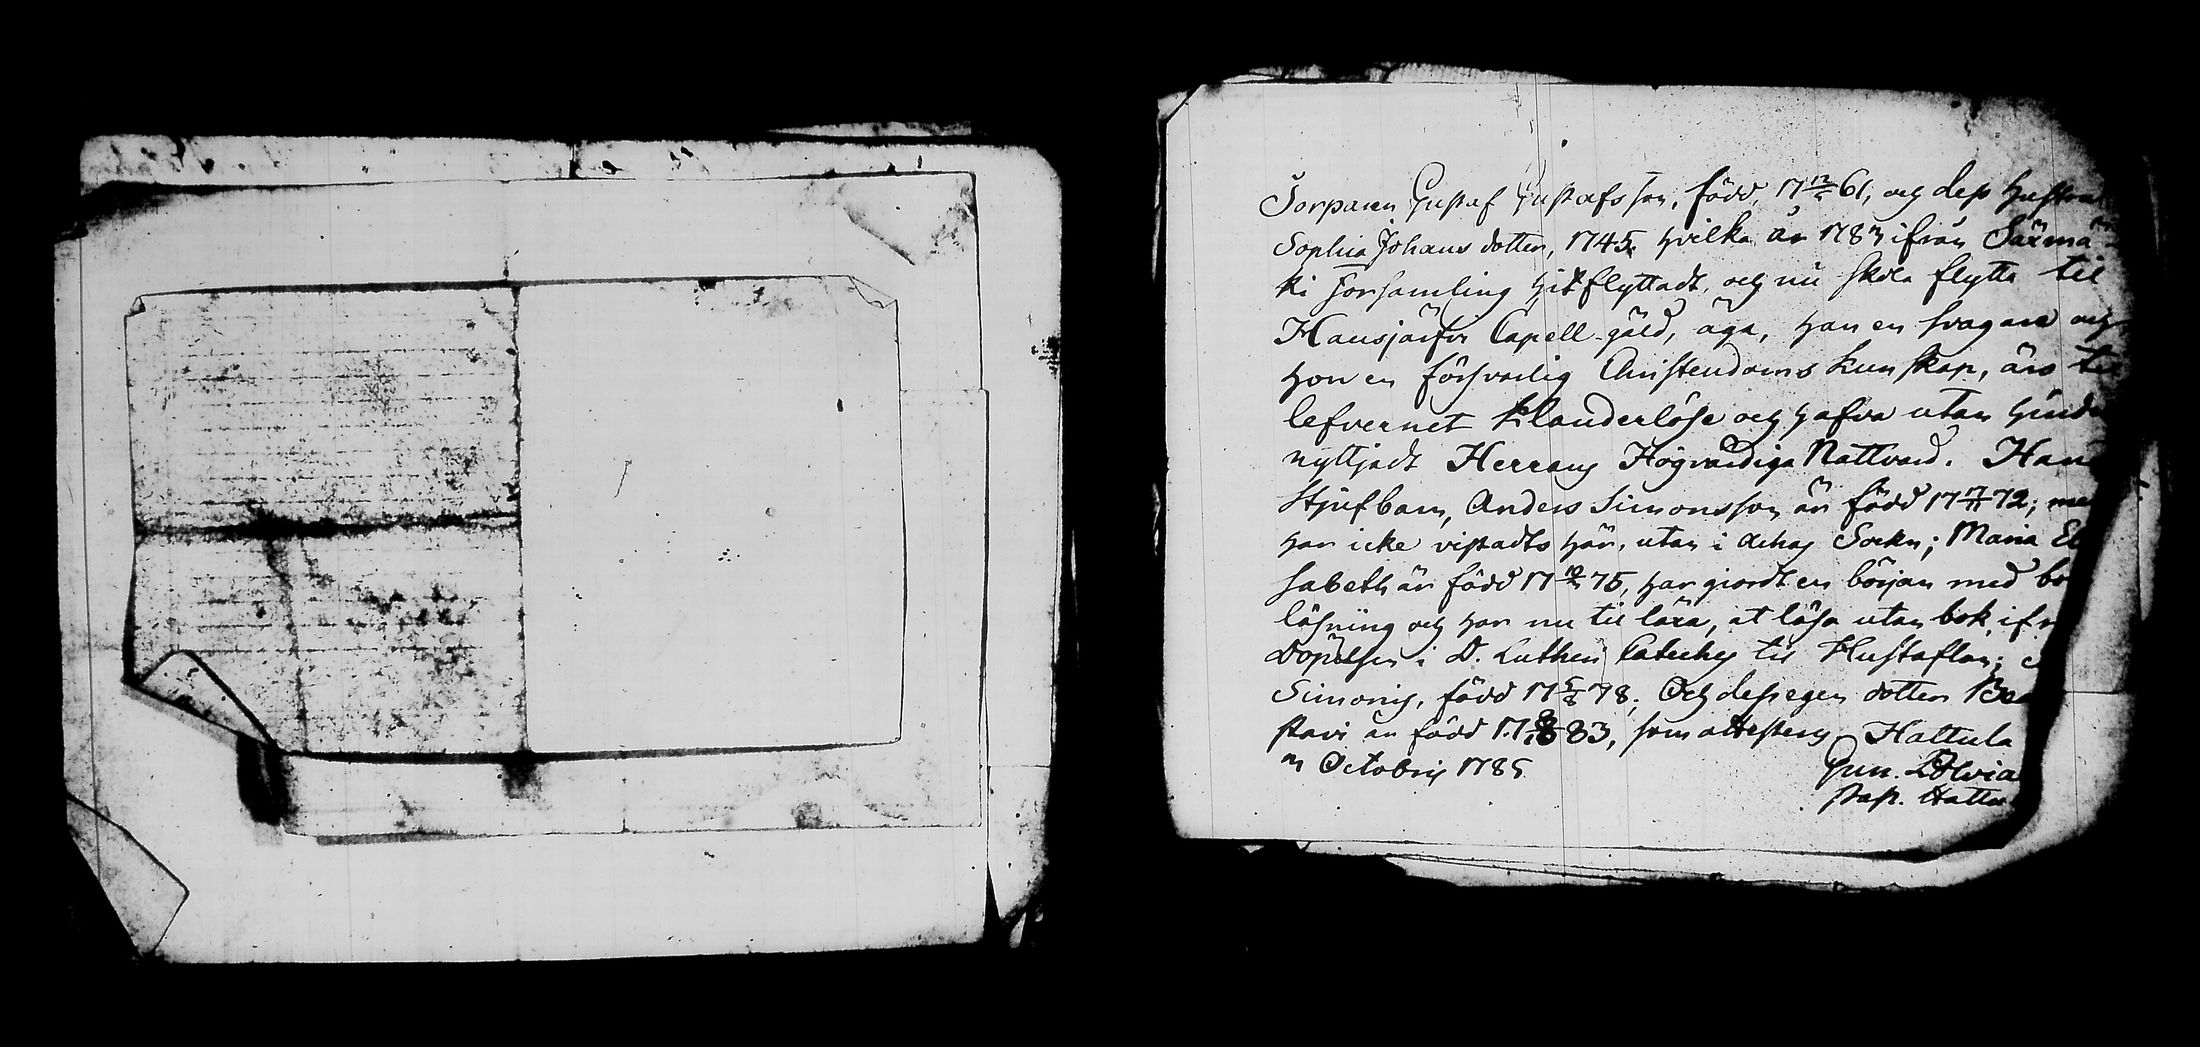 Torparen Gustaf Gustafsson, född, 17 12/5 61, och dess hustru
Sophia Johans dotter, 1745. hvilka år 1783 ifrån Särmä-
ki Församling hitflyttadt, och nu skola flytta til
Hausjärfvi Capell-gäld, äga, han en svagare och
hon en försvarlig Christendoms kunskap, äro til
lefvernet klanderlöse och hafva utan hinder
nyttjadt Herrans Högvärdiga Nattvard. Hans
Stjufbarn, Anders Simonsson är född 17 7/11 72; men
har icke vistadts här, utan i Sockn; Maria Eli
sabeth är född 17 75, har giordt en början med bok
läsning och har nu til lära, at läsa utan bok ifrån
Döpelsen i D. Lutheri Cateches til Hustaflan;
Simonis, född 17 5/8 78; Och dess egen dotter
stavi är född 17 83, som attesteras Hattula
Octobris 1785
Gun. Polvia
Past. Hattu